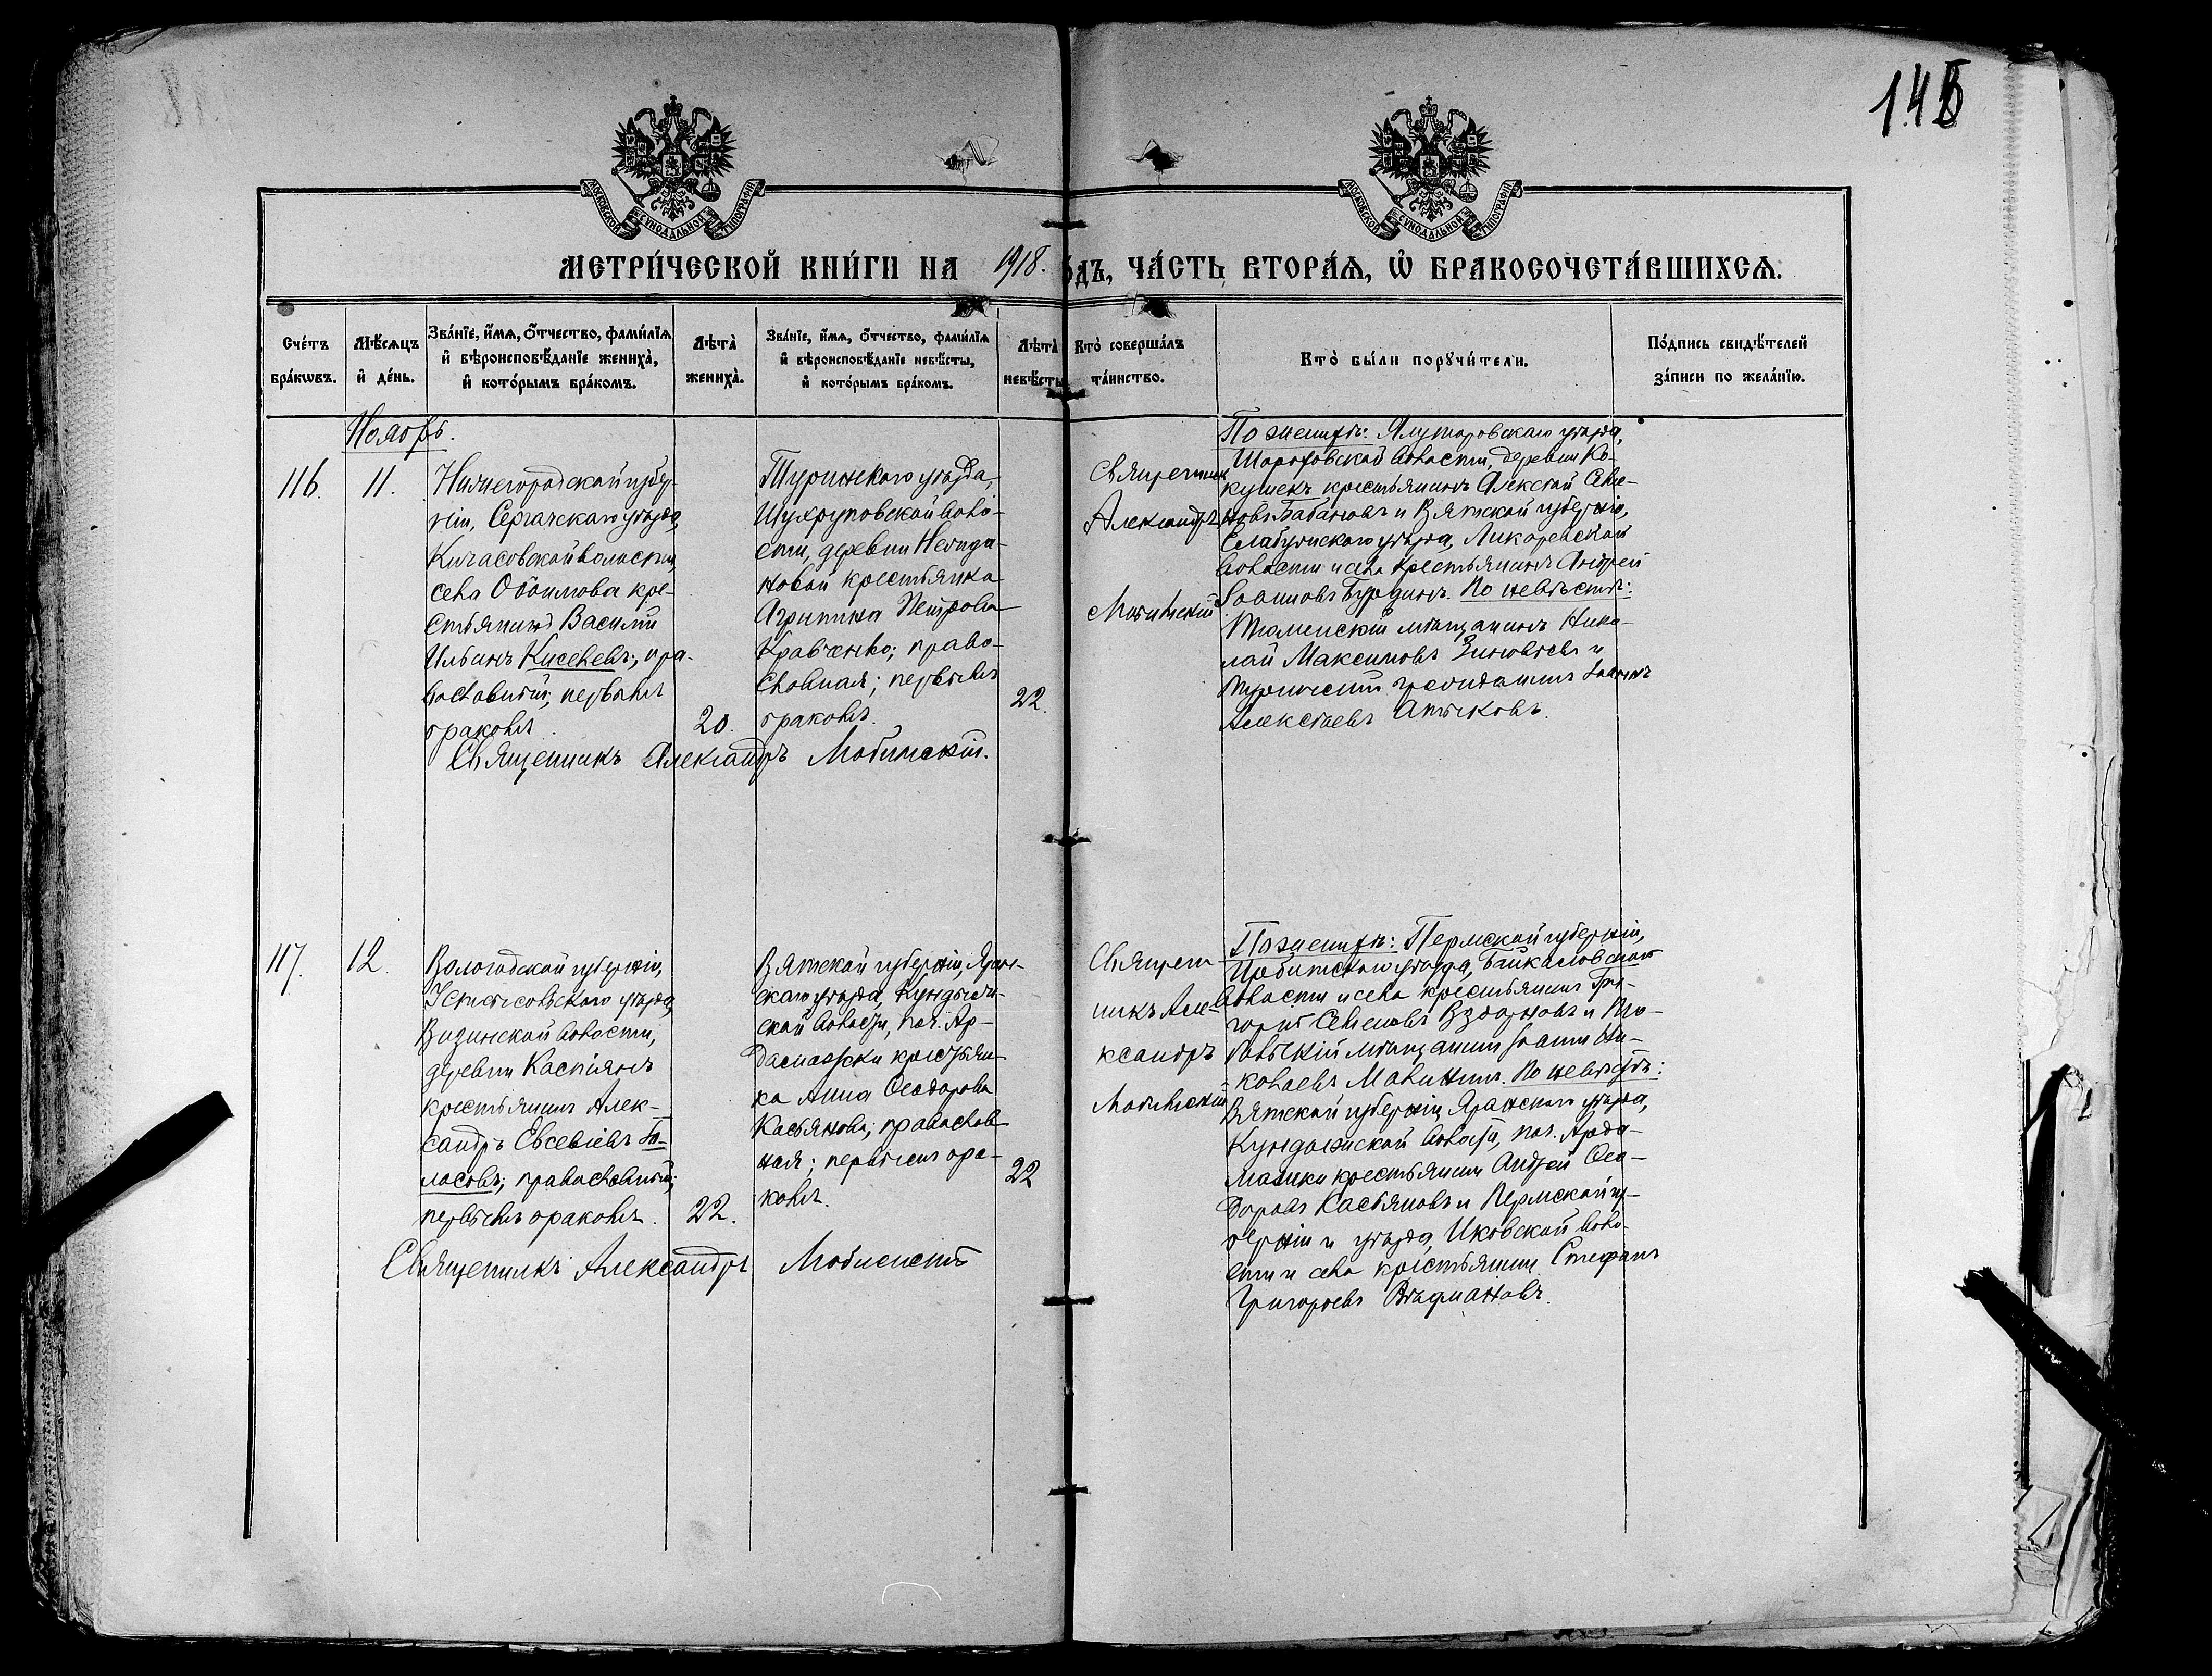 145
МОСКОВСКОЙ СѴНОДАЛЬНОЙ ТИПОГРАФІИ
МОСКОВСКОЙ СѴНОДАЛЬНОЙ ТИПОГРАФІИ
МЕТРИ́ЧЕСКОЙ КНИ́ГИ НА 1918. о́дъ, ЧА́СТЬ ВТОРА́Ѧ, Ѽ БРАКОСОЧЕТА́ВШИХСѦ.
Сче́тъ
бра́кѡвъ.
Мѣ́сѧцъ
и҆ де́нь.
Зва́нїе, и҆́мѧ, о҆́тчество, фами́лїѧ
и҆ вѣроисповѣ́данїе жениха̀,
и҆ кото́рымъ бра́комъ.
Лѣта̀
жениха̀.
Зва́нїе, и҆́мѧ, о҆́тчество, фами́лїѧ
и҆ вѣроисповѣ́данїе невѣ́сты,
и҆ кото́рымъ бра́комъ.
Лѣта̀
невѣ́сты
Кто̀ соверша́лъ
та́инство.
Кто̀ бы́ли порꙋчи́тели.
По́дпись свидѣ́телей
за́писи по жела́нїю.
Ноябрь.
116.
11.
Нижегородской губер-
ніи, Сергачскаго уѣзда,
Кичасовской волости,
села Обоимова кре-
стьянинъ Василій
Ильинъ Киселевъ, пра-
вославный; первымъ
бракомъ.
20.
Туринскаго уѣзда,
Шухруповской воло-
сти, деревни Неожда-
новой крестьянка
Агрипина Петрова
Кравченко; право-
славная; первымъ
бракомъ.
22.
Священникъ
Александръ
По женихѣ: Ялуторовскаго уѣзда,
Шороховской волости, деревни Ко-
кушекъ крестьянинъ Алексѣй Семе-
новъ Бабановъ и Вятской губерніи,
Елабужскаго уѣзда, Ликаревской
волости и села крестьянинъ Андрей
Іоанновъ Бурдинъ. По невѣстѣ:
Тюменскій мѣщанинъ Нико-
лай Максимовъ Зиновьевъ и
Туринскій гражданинъ Іоаннъ
Алексѣевъ
Священникъ Александръ
117.
12.
Вологодской губерніи,
Устьсысольскаго уѣзда,
Визинской волости,
деревни
крестьянинъ Алек-
сандръ Евсевіевъ Го-
лосовъ; православный;
первымъ бракомъ.
22.
Вятской губерніи, Яран-
скаго уѣзда,
ской волости, поч. Ар-
крестьян-
ка Анна Ѳеодорова
Касьянова; православ-
ная; первымъ бра-
комъ.
22
Священ-
никъ Але-
ксандръ
По женихѣ: Пермской губерніи,
Ирбитскаго уѣзда, Байкаловской
волости и села крестьянинъ Гри-
горій Семеновъ Вздорновъ и То-
больскій мѣщанинъ Іоаннъ Ни-
колаевъ Малининъ. По невѣстѣ:
Вятской губерніи, Яранскаго уѣзда,
волости, поч. Арда-
крестьянинъ Андрей Ѳео-
доровъ Касьяновъ и Пермской гу-
берніи и уѣзда, Иковской воло-
сти и села крестьянинъ Стефанъ
Григорьевъ
Священникъ Александръ